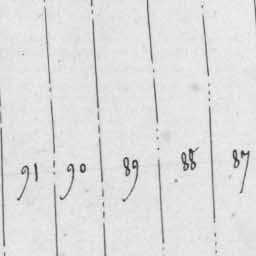 91 90 89 88 87